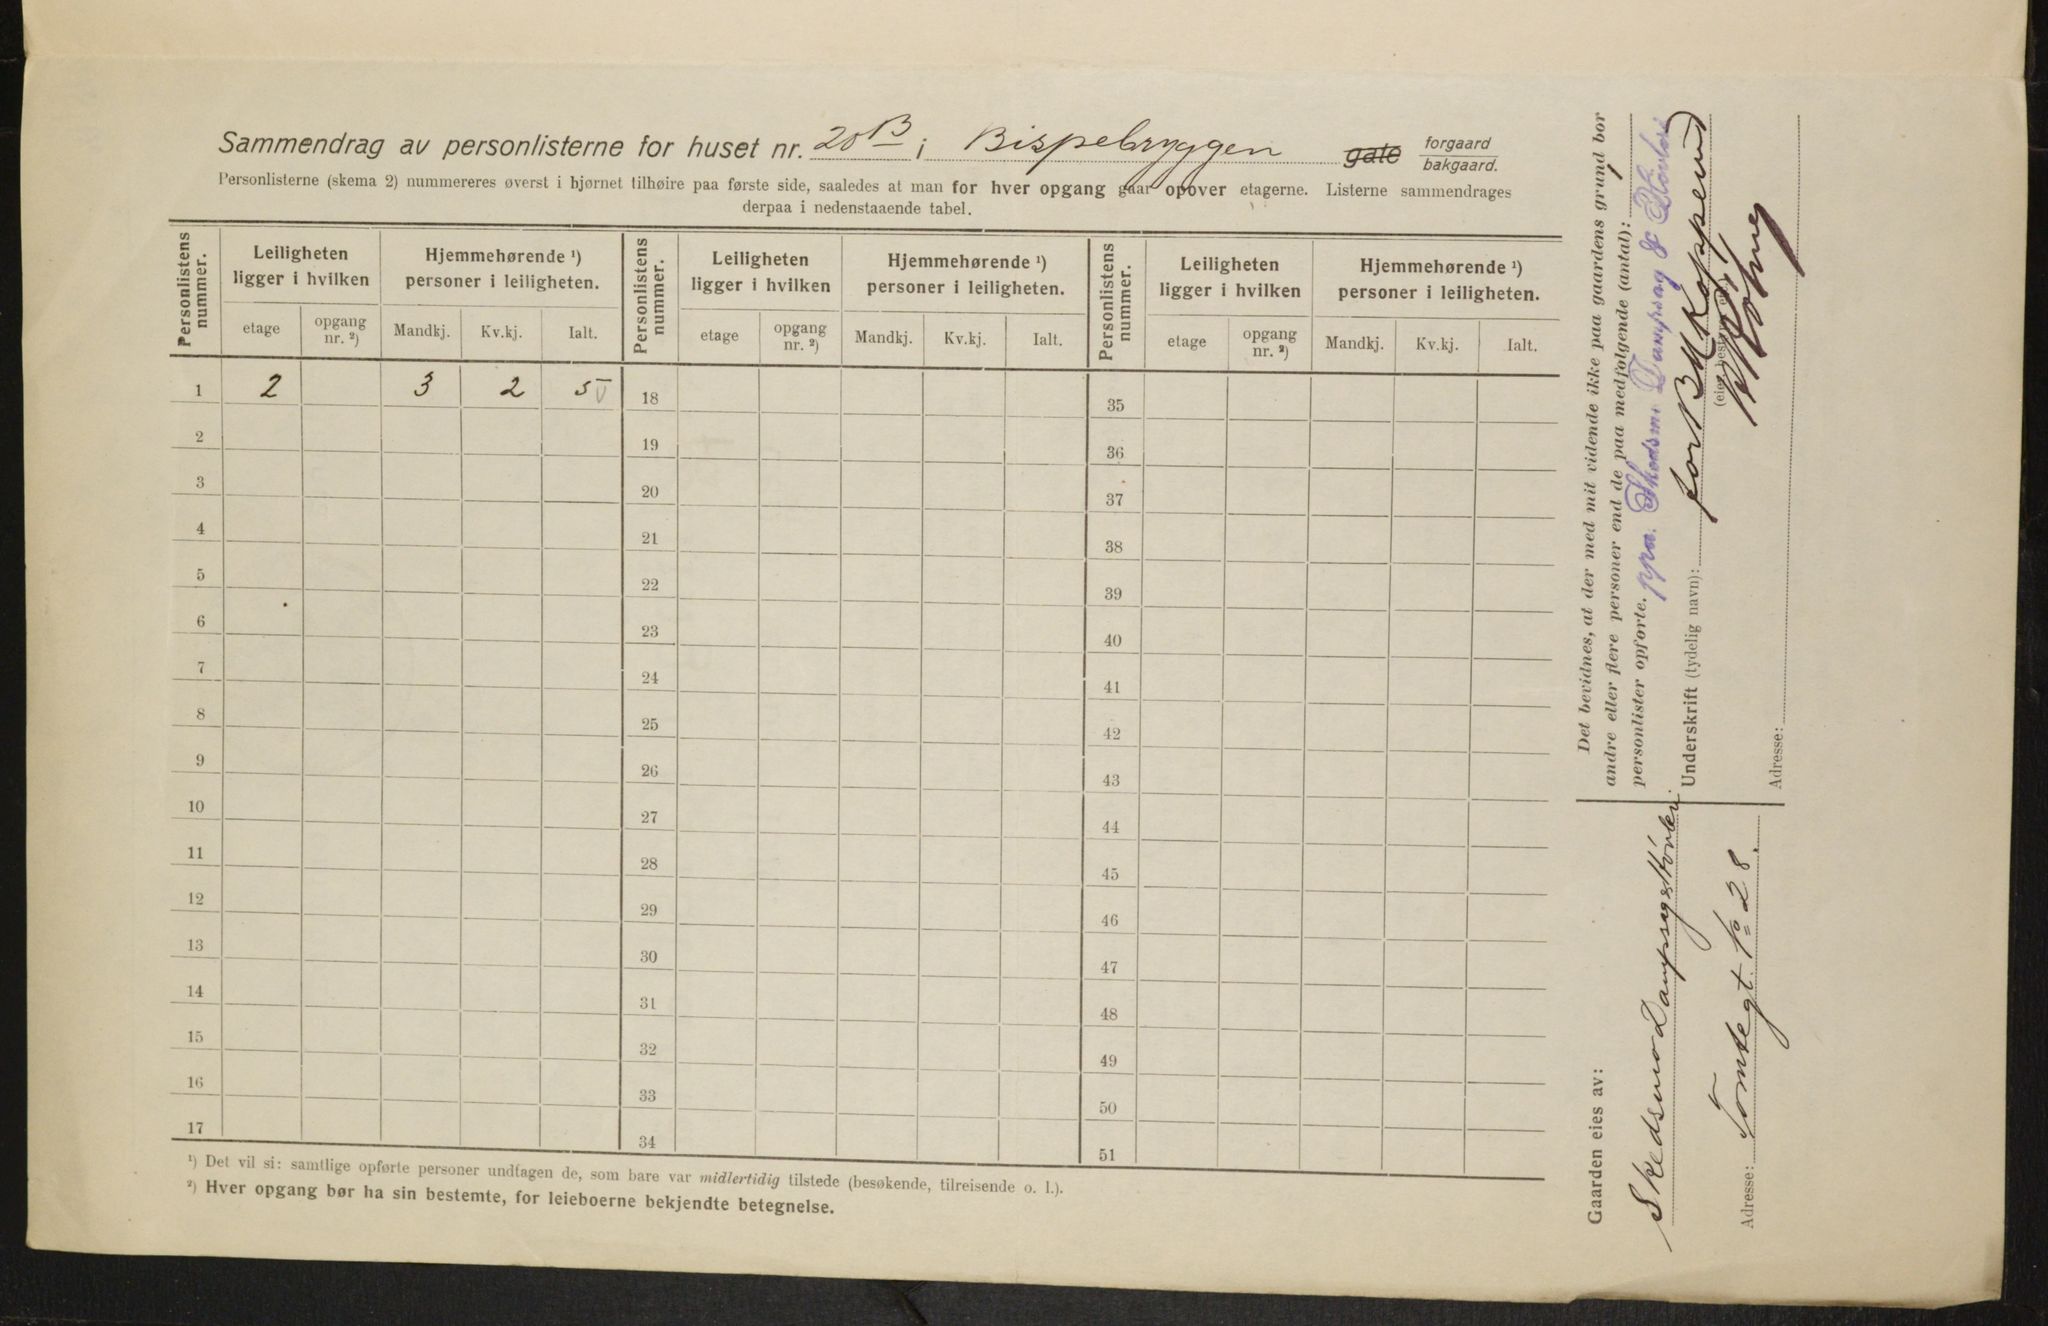 Sammendrag av personlisterne for huset nr. 20 B i Bispebryggen gate forgaard
bakgaard.
Personlisterne (skema 2) nummereres øverst i bjørnet tilhøire paa første side, saaledes at man for hver opgang gaar opover etagerne. Listerne sammendrages
derpaa i nedenstaaende tabel.
Personlistens nummer. Leiligheten ligger i hvilken Hjemmehørende ¹) personer i leiligheten. Personlistens nummer. Leiligheten ligger i hvilken Hjemmehørende ¹) personer i leiligheten. Personlistens nummer. Leiligheten ligger i hvilken Hjemmehørende ¹) personer i leiligheten.
etage opgang nr. ²) Mandkj. Kv.kj. Ialt. etage opgang nr. ²) Mandkj. Kv.kj. Ialt. etage opgang nr. ²) Mandkj. Kv.kj. Ialt.
1 2 3 2 5 18 35
2 19 36
3 20 37
4 21 38
5 22 39
6 23 40
7 24 41
8 25 42
9 26 43
10 27 44
11 28 45
12 29 46
13 30 47
14 31 48
15 32 49
16 33 50
17 34 51
¹) Det vil si: samtlige opførte personer undtagen de, som bare var midlertidig tilstede (besøkende, tilreisende o. l.).
²) Hver opgang bør ha sin bestemte, for leieboerne bekjendte betegnelse.
Det bevidnes, at der med mit vidende ikke paa gaardens grund bor
andre eller flere personer end de paa medfølgende (antal):
personlister opførte. ppa. Skedsmo Dampsag & Høvleri
Underskrift (tydelig navn): for
Adresse:
Gaarden eies av:
Skedsmo Dampsag & Høvleri
Adresse: Tomtegt. No 28.